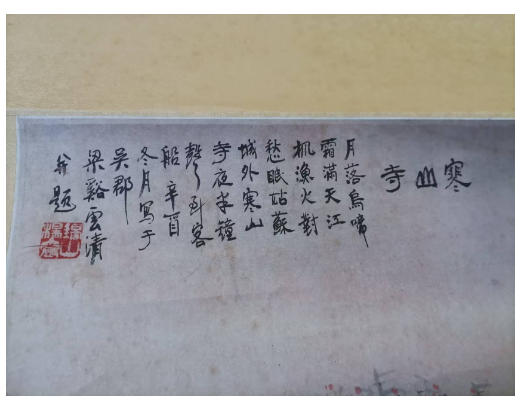 寒山寺
月落烏啼
霜滿天江
枫漁火對
愁眠姑蘇
城外寒山
寺夜半鐘
聲到客
船辛酉
冬月寫于
吳郡
梁谿雲
題